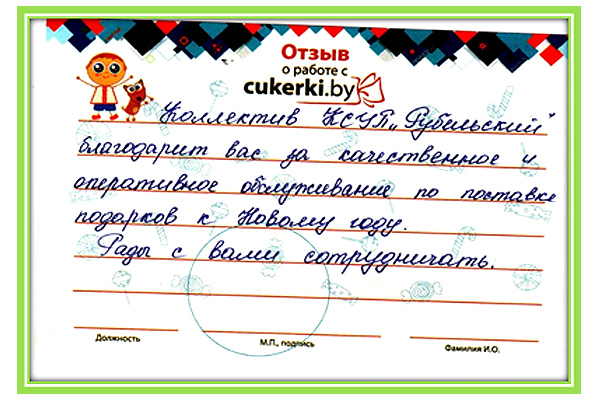 Отзыв
о работе с
cukerki.by
Коллектив КСУП „Рубельский"
благодарит вас за качественное и
оперативное обслуживание по поставке
подарков к Новому году.
Рады с вами сотрудничать.
Должность
М.П., подпись
Фамилия И.О.